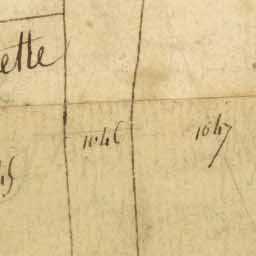 ette
1046
1047